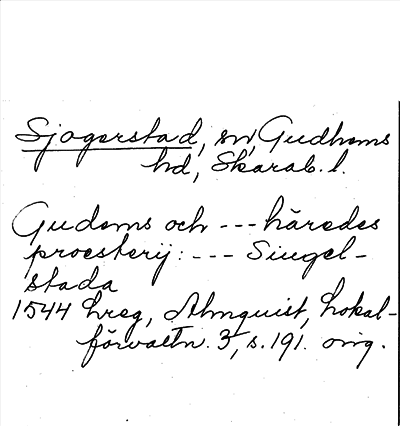 Sjogerstad, sn, Gudhems
hd, Skarab. l.
Gudems och --- häredes
proesterij: --- Siugel-
stada
1544 hreg, Almquist, Lokal-
förvaltn. 3, s. 191. orig.